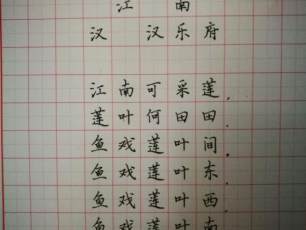 江 南
汉 汉乐府
江南可采莲,
莲叶何田田.
鱼戏莲叶间.
鱼戏莲叶东,
鱼戏莲叶西,
鱼戏莲叶南